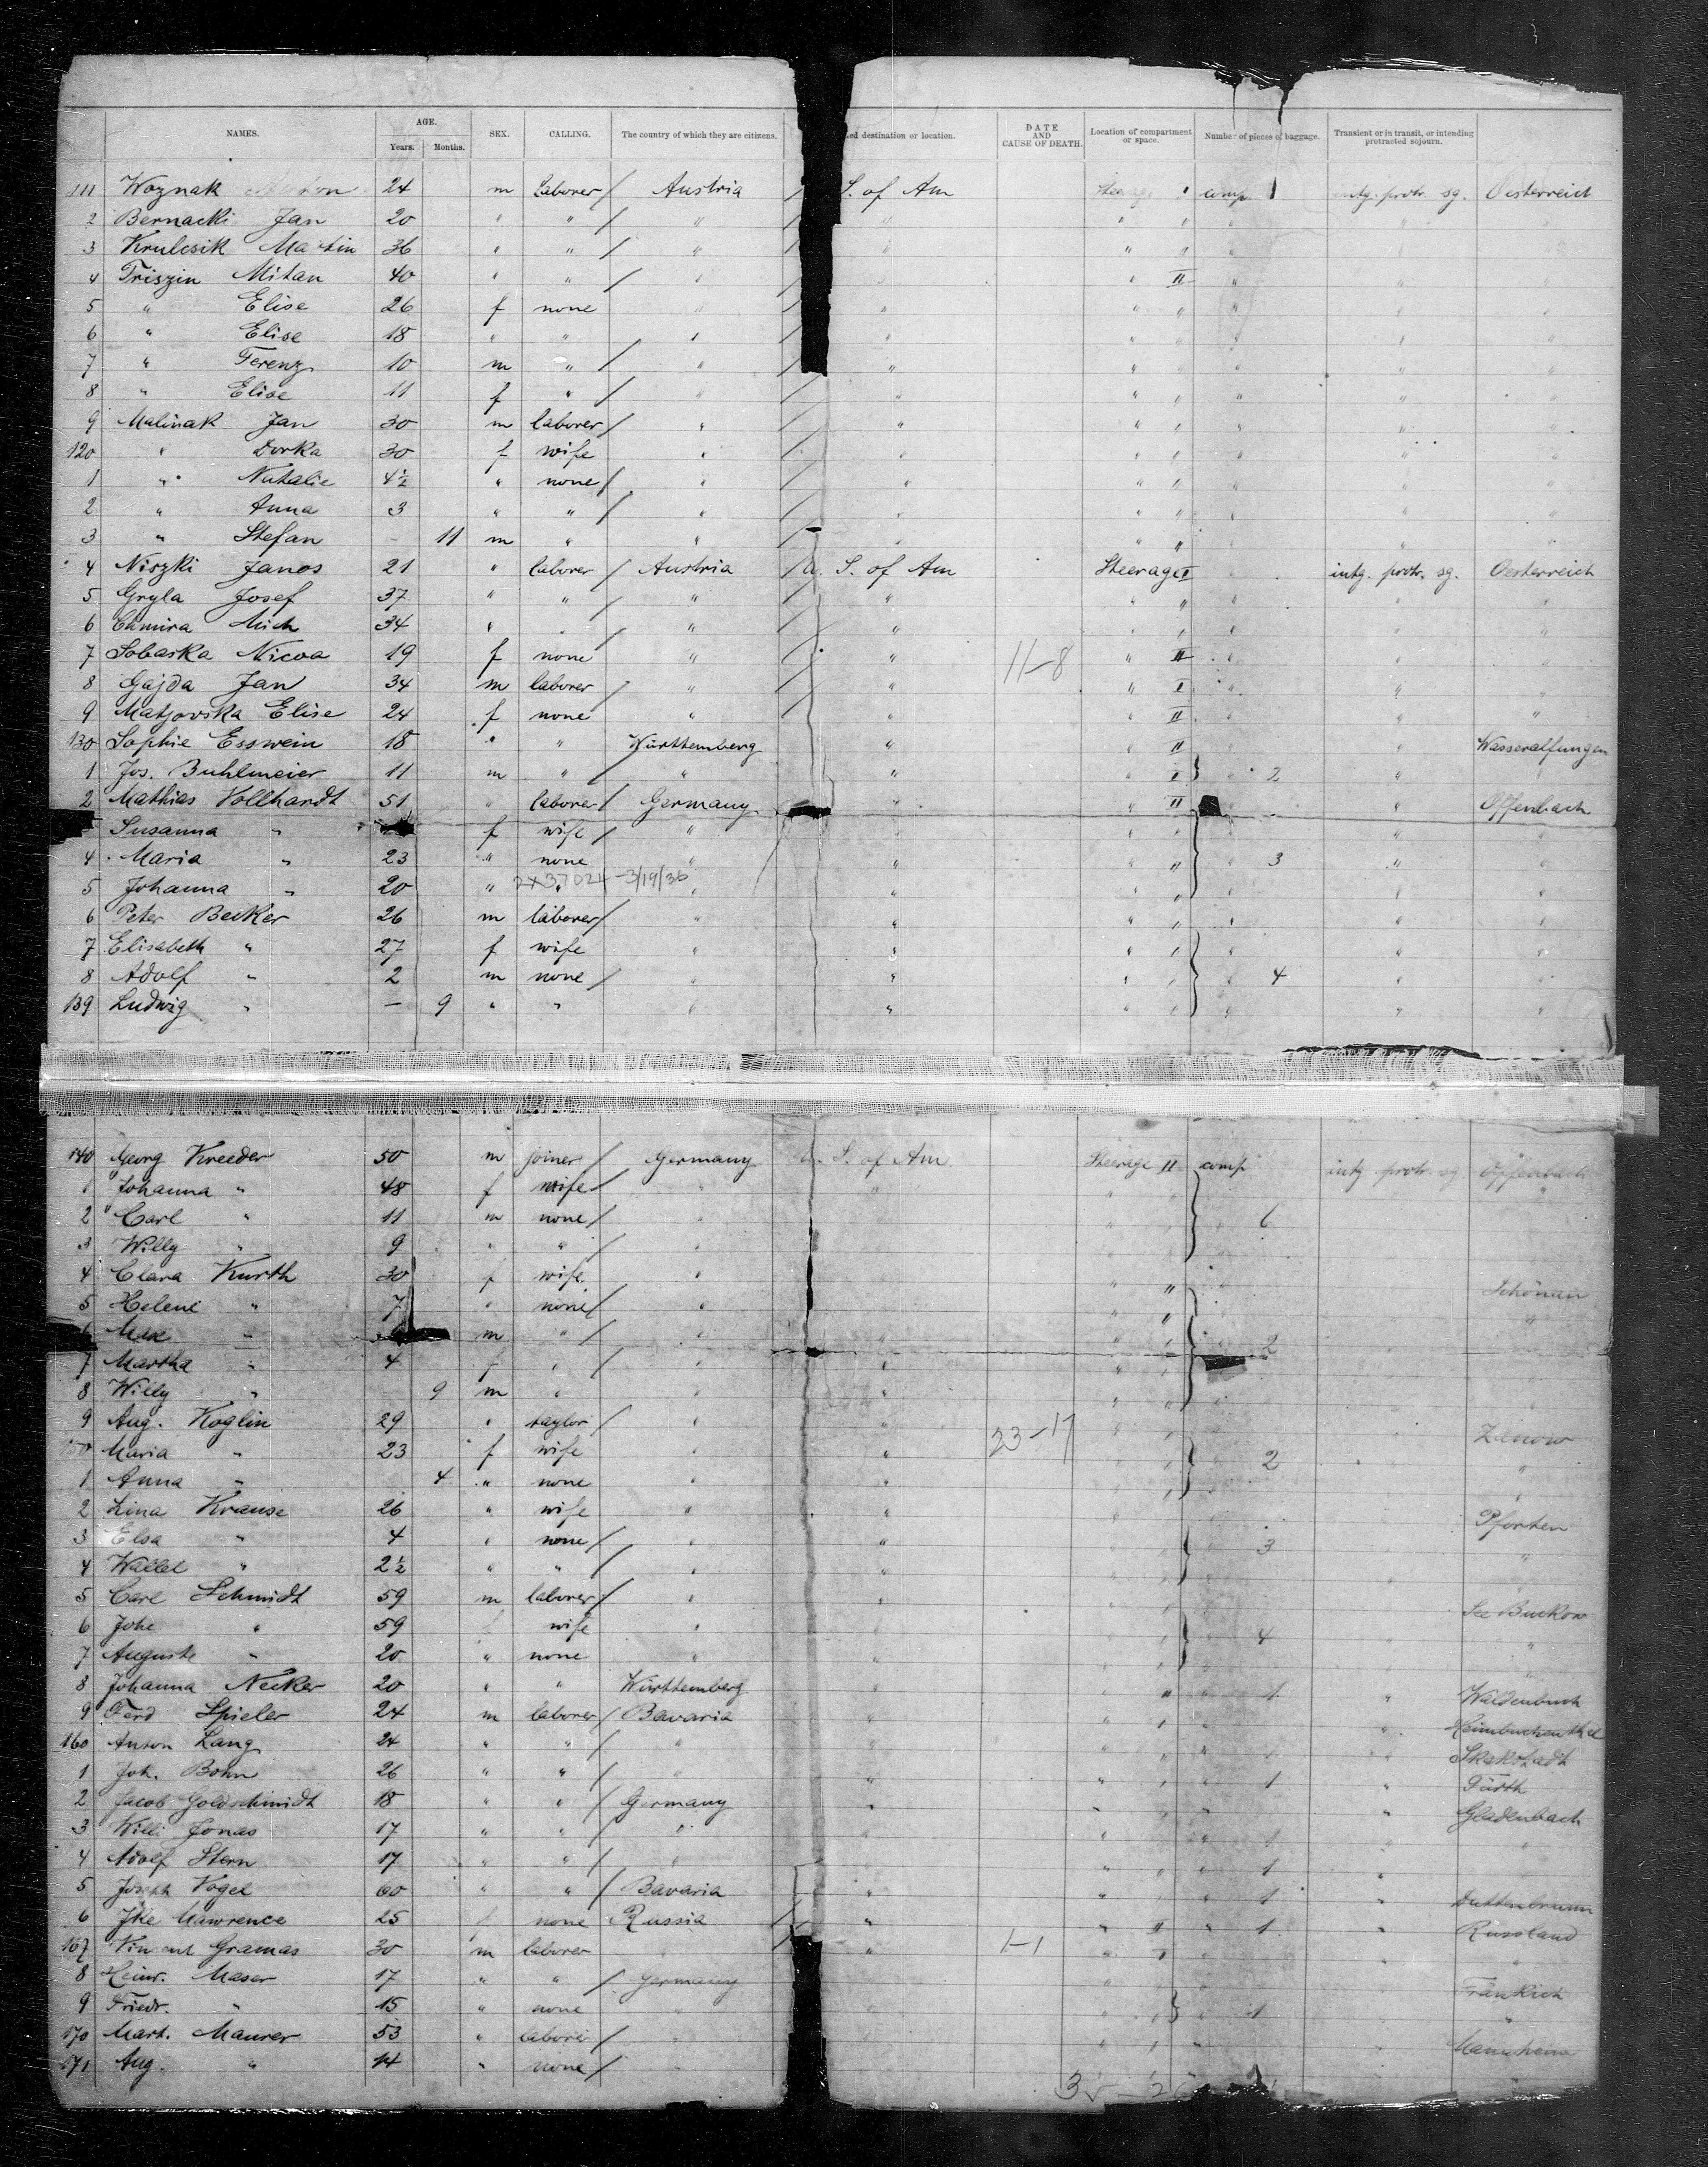 NAMES. AGE. Years. Months. SEX. CALLING. The country of which they are citizens. destination or location. DATE AND CAUSE OF DEATH. Location of compartment or space. Number of pieces of baggage. Transient or in transit, or intending protracted sojourn.
111 Woznak 24 m laborer / Austria / S. of Am comp 1 intg. protr. sg. Oesterreich
2 Bernacki Jan 20 " " / " / " " " "
3 Krulcsik Martin 36 " " / " / " " " "
4 Triszin Mitan 40 " " / " / " " II " " "
5 " Elise 26 f none " / " " " " " "
6 " Elise 18 " " " / " " " " " "
7 " Ferenz 10 m " / " / " " " " " "
8 " Elise 11 f " / " / " " " " " "
9 Malinak Jan 30 m laborer / " / " " " " " "
120 " Dorka 30 f wife " / " " " " " "
1 " Natalie 4½ " none / " / " " " " " "
2 " Anna 3 " " / " / " " " " " "
3 " Stefan - 11 m " " " " " " "
4 Niszki Janos 21 " laborer / Austria / U. S. of Am Steerage I intg. protr. sg. Oesterreich
5 Gryla Josef 37 " " / " / " " " " " "
6 Chmira Mich 34 " " " / " " " " " "
7 Sobaska Nicoa 19 f none " / " 11-8 " II " " "
8 Gajda Jan 34 m laborer / " / " " I " " "
9 Matjovska Elise 24 f none " / " " II " " "
130 Sophie Esswein 18 " " Württemberg " " II " Wasseralfungen
1 Jos. Buhlmeier 11 m " / " " " I } " 2 " "
2 Mathias Vollhardt 51 " laborer / Germany " " II " Offenbach
Susanna " f wife / " " " " "
4 Maria " 23 " none " " " " " 3 " "
5 Johanna " 20 " " 2X37024-3/19/36 " " " " " "
6 Peter Becker 26 m laborer / " " " " " " "
7 Elisabeth " 27 f wife " " " " " " "
8 Adolf " 2 m none / " " " " " 4 " "
139 Ludwig " — 9 " " " " " " " "
140 Georg Kreeder 50 m joiner / Germany U. S. of Am. Steerage II comp intg. protr. sg Offenbach
1 Johanna " 48 f wife / " " " "
2 Carl " 11 m none / " " " 6
3 Willy " 9 " " / "
4 Clara Kurth 30 f wife " " Schönau
5 Helene " 7 " none / " " " "
6 Max " m " / " " " " 2
7 Martha " 4 f " / " " " "
8 Willy " 9 m " " " " "
9 Aug. Koglin 29 " taylor / " " 23-17 Zanow
150 Maria " 23 f wife " " 2 "
1 Anna " 4 " none " " "
2 Lina Krause 26 " wife " " Pforten
3 Elsa " 4 " none / " " 3 "
4 Wallet " 2½ " " / " "
5 Carl Schmidt 59 m laborer / " See Buckow
6 Johe " 59 f wife " 4 "
7 Auguste " 20 " none " " "
8 Johanna Necker 20 " " Württemberg " " " 1 " Waldenbuch
9 Ferd Spieler 24 m laborer / Bavaria " " " " Heimbuchenthal
160 Anton Lang 24 " " / " " " 1 "
1 Joh. Bohn 26 " " / " " " " 1 " Fürth
2 Jacob Goldschmidt 18 " " / Germany " " " " Gladenbach
3 Willi Jonas 17 " " / " " " 1 "
4 Adolf Stern 17 " " / " " " 1 "
5 Joseph Vogel 60 " " / Bavaria " " " 1 " Duttenbrunn
6 Ike Mawrence 25 f none Russia / " " " " 1 " Russland
167 Vincent Gramas 30 m laborer " 1-1 " I " "
8 Heinr. Maser 17 " " / Germany " " Fränkich
9 Friedr. " 15 " none " } " 1 "
170 Mart. Maurer 53 " laborer / " " " " Mannheim
171 Aug. " 14 " none / "